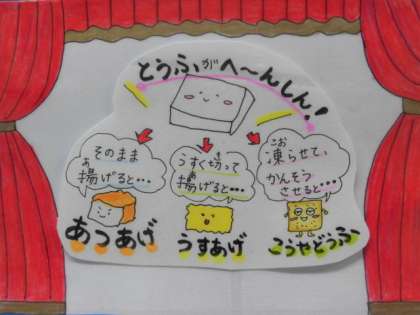 とうふがへ〜んしん!
そのまま
揚げると・・・
あ
あつあげ
うすく切って
揚げると・・・
き
あ
うすあげ
凍らせて、
かんそう
させると・・・
こお
こうやどうふ